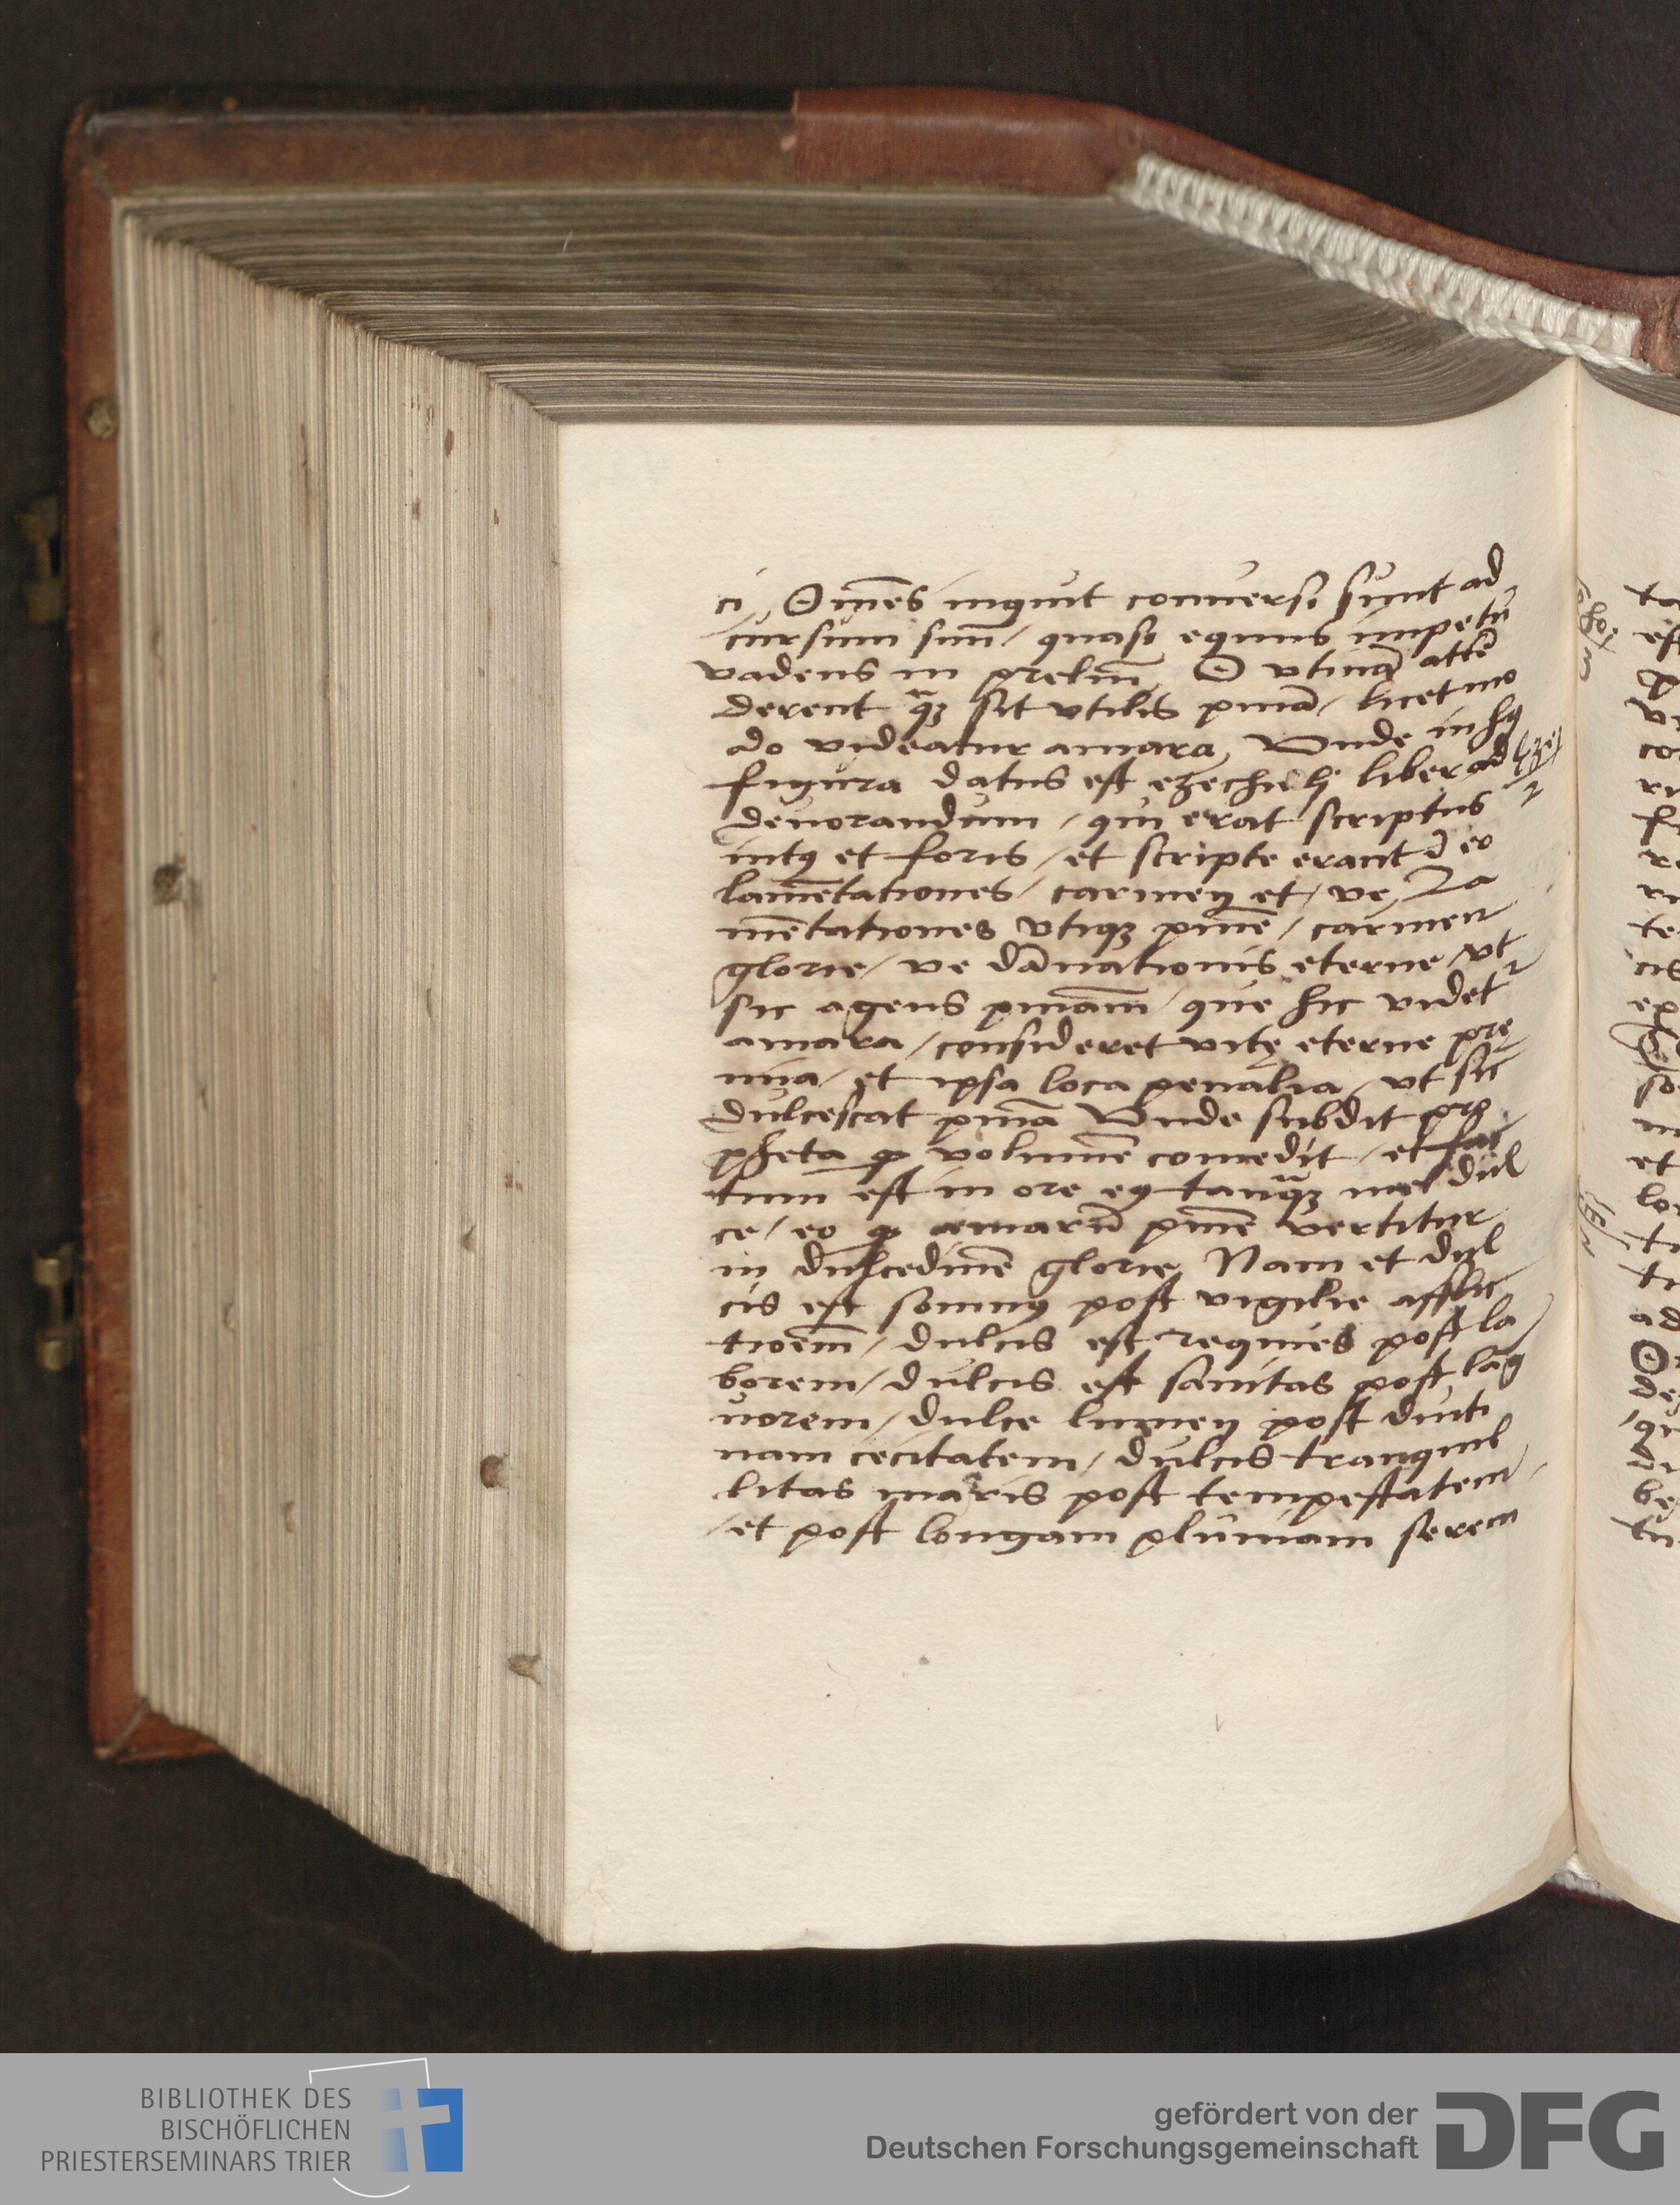 ci, Om̃es inquit conuersi sunt ad
cursum suū / quasi equus impetū
vadens in preliū, O vtinã attē
derent q̃ꝫ sit vtilis pniã / licet mo
do videatur amara, Vnde in hꝰ
figura datus est ezechieli liber ad
deuorandum / qui erat scriptus
intꝰ et foris / et scripte erant ī eo
lamētationes / carmen et / ve, La
mētationes vtiqꝫ pniē / carmen
glorie / ve dãnationis eterne / vt
sic agens pniam̃ / que hic videt᷑
amara / consideret vitę eterne prę
mia / et ipsa loca penalia / vt sic
dulcescat pniã Vnde subdit pro
pheta ꝙ volumē comedit / et fac
tum est in ore eiꝰ tanq̃ꝫ mel dul
ce / eo ꝙ amarū pniē vertitur
in dulcedinē glorie, Nam et dul
cis est somnꝰ post vigilie afflic
tioem̃ / dulcis est requies post la
borem / dulcis est sanitas post lãg
uorem / dulce lumen post diuti
nam cecitatem / dulcis tranquil
litas maris post tempestatem /
/ et post longam pluuiam seren
Ezeꝭ
2
BIBLIOTHEK DES
BISCHÖFLICHEN
PRIESTERSEMINARS TRIER
gefördert von der
Deutschen Forschungsgemeinschaft
DFG